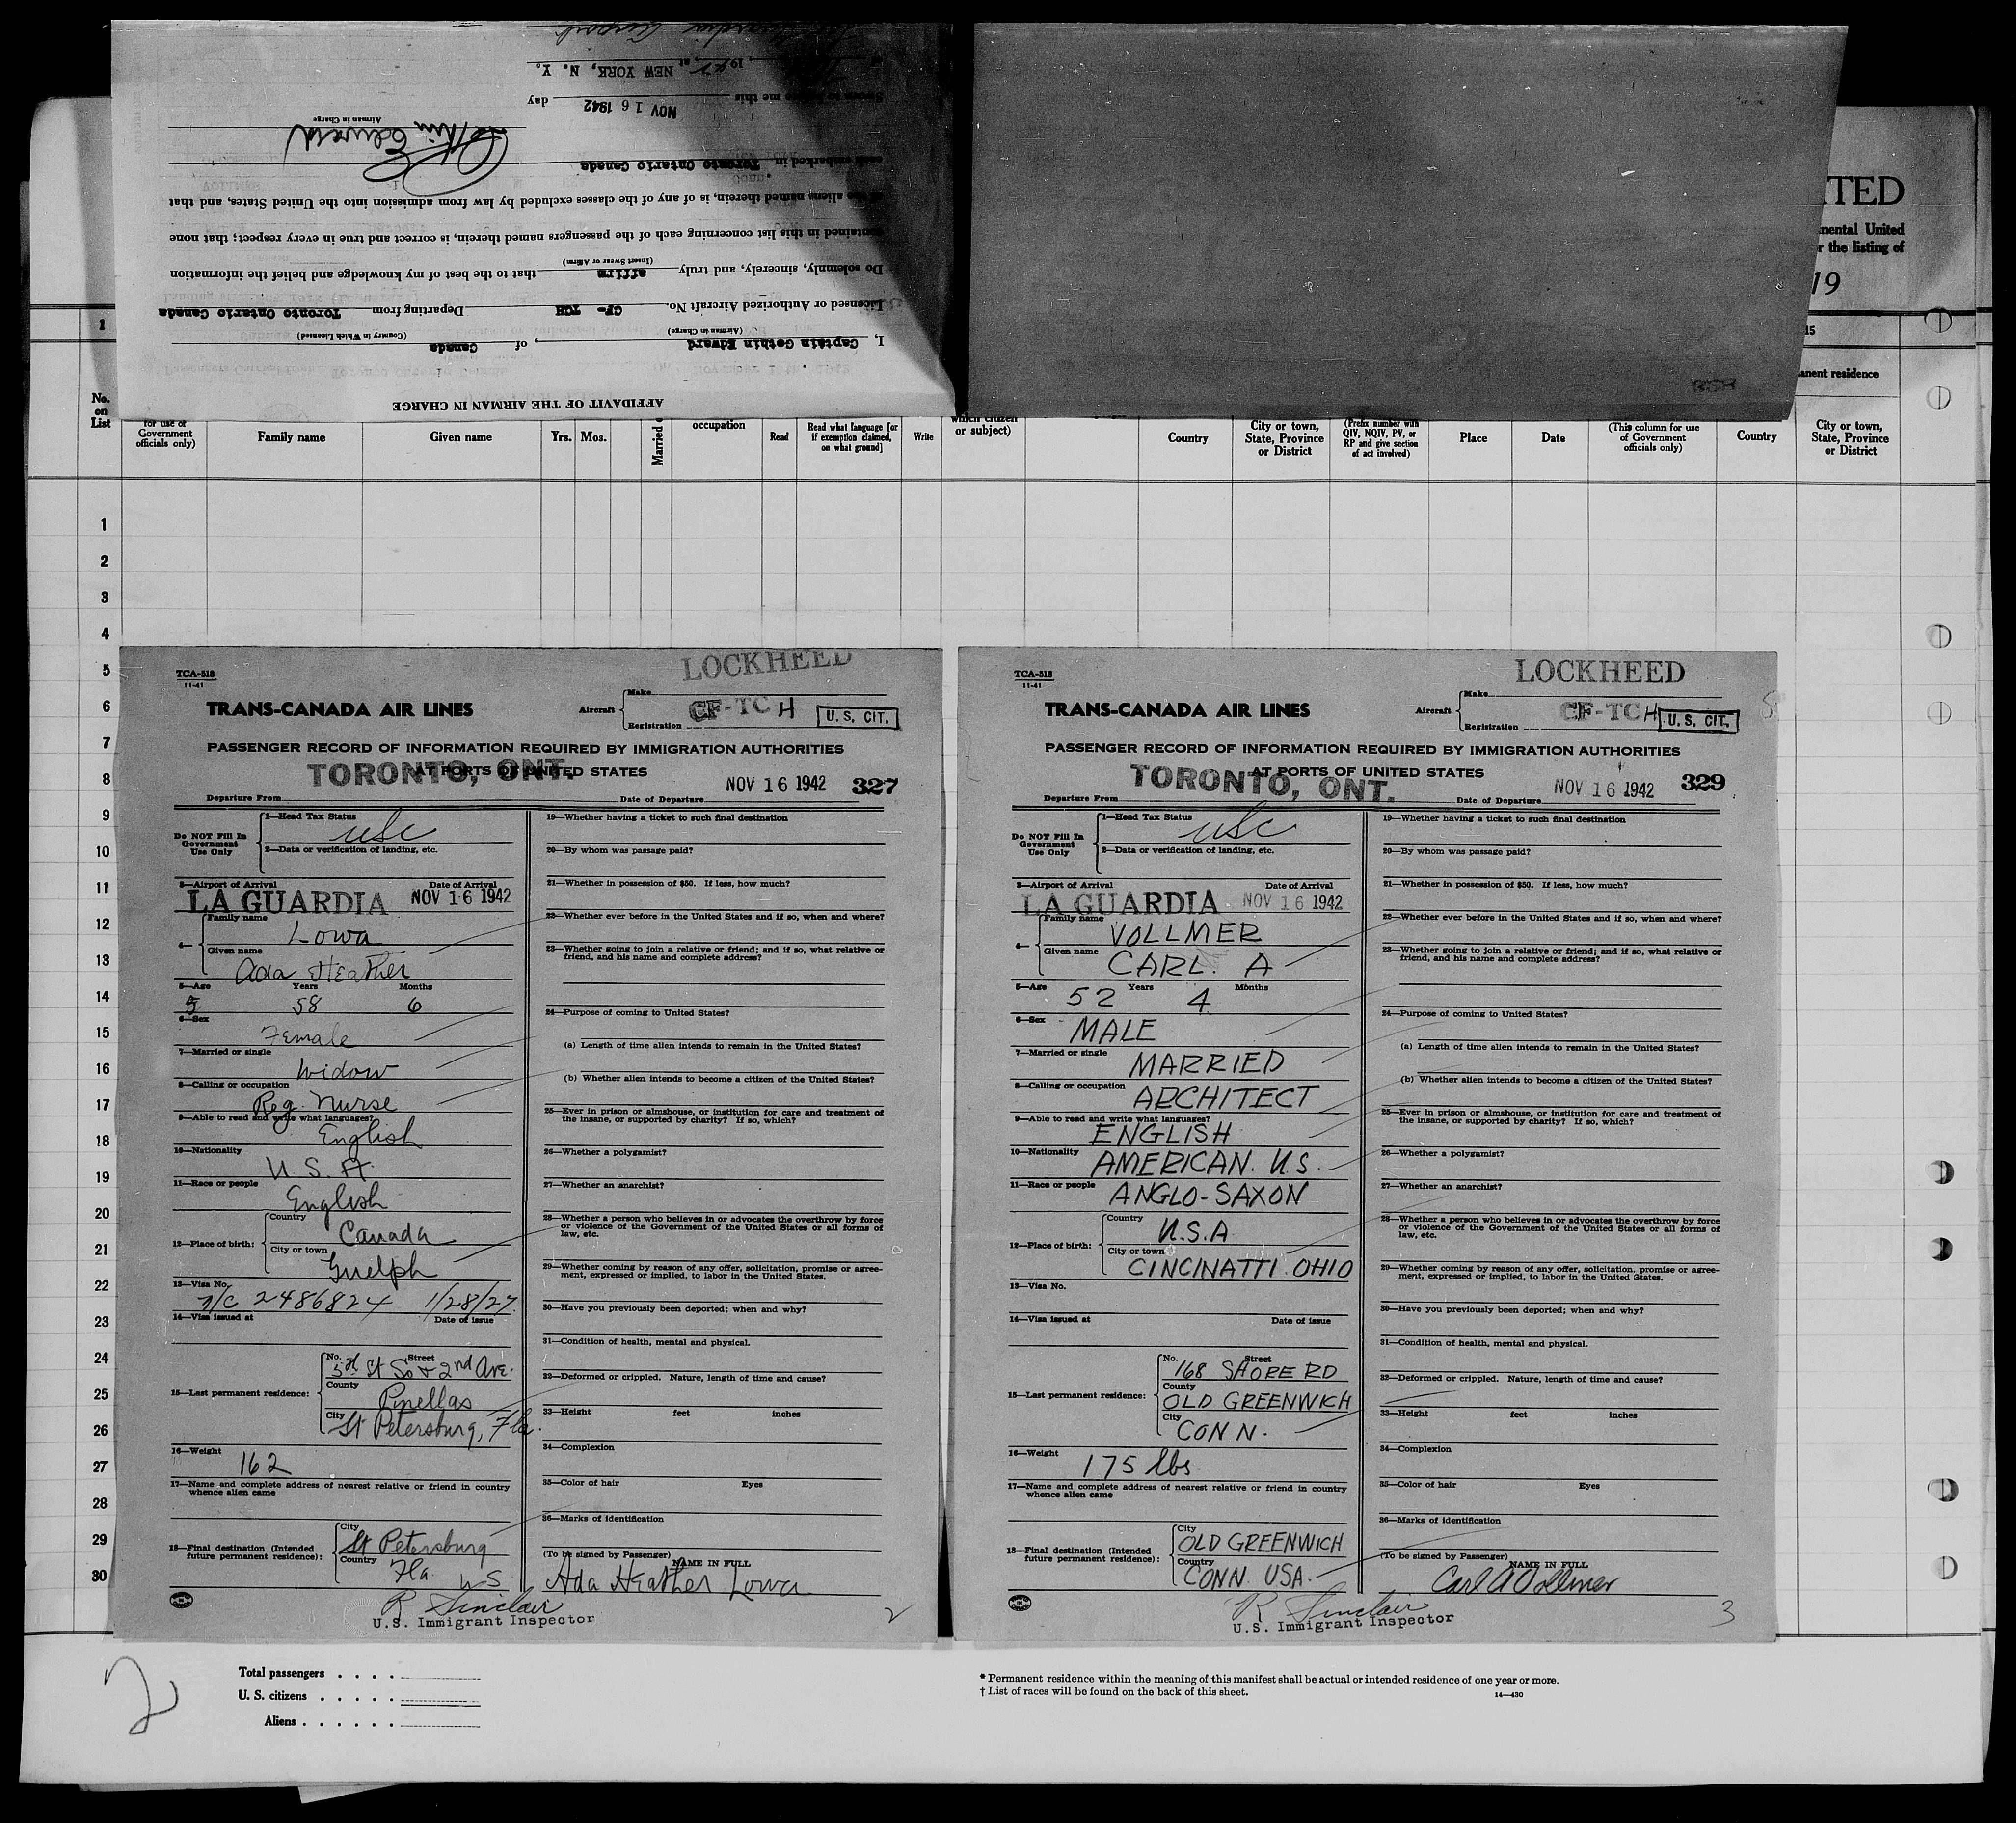 AFFIDAVIT OF THE AIRMAN IN CHARGE
I, Captain Gethin Edward, of Canada
(Airman in Charge) (Country in Which Licensed)
Licensed or Authorized Aircraft No. CF- TCH Departing from Toronto Ontario Canada
Do solemnly, sincerely, and truly affirm that to the best of my knowledge and belief the information
(Insert Swear or Affirm)
contained in this list concerning each of the passengers named therein, is correct and true in every respect; that none
of the aliens named therein, is of any of the classes excluded by law from admission into the United States, and that
each embarked in Toronto Ontario Canada
Gethin Edward
Airman in Charge
me this NOV 16 1942 day
1942, at NEW YORK, N. Y.
Airport
ITED
nental United
r the listing of
19
1
15
anent residence
No. on List
for use of Government officials only)
Family name
Given name
Yrs.
Mos.
Married
occupation
Read
Read what language [or if exemption claimed, on what ground]
Write
which citizen or subject)
Country
City or town, State, Province or District
(Prefix number with QIV, NQIV, PV, or RP and give section of act involved)
Place
Date
(This column for use of Government officials only)
Country
City or town, State, Province or District
1
2
3
4
5
6
7
8
9
10
11
12
13
14
15
16
17
18
19
20
21
22
23
24
25
26
27
28
29
30
TCA-518
11-41
LOCKHEED
TRANS-CANADA AIR LINES
Aircraft
Make
Registration CF-TCH
U. S. CIT.
PASSENGER RECORD OF INFORMATION REQUIRED BY IMMIGRATION AUTHORITIES
AT PORTS OF UNITED STATES
TORONTO, ONT.
NOV 16 1942
327
Departure From
Date of Departure
Do NOT Fill In Government Use Only
1—Head Tax Status
usc
2—Data or verification of landing, etc.
3—Airport of Arrival Date of Arrival
LA GUARDIA NOV 16 1942
4—
Family name
Lowa
Given name
Ada Heather
5—Age Years Months
5 58 6
6—Sex
Female
7—Married or single
Widow
8—Calling or occupation
Reg. Nurse
9—Able to read and write what languages?
English
10—Nationality
U. S. A.
11—Race or people
English
12—Place of birth:
Country
Canada
City or town
Guelph
13—Visa No.
n/c 2486824 1/28/27
14—Visa issued at Date of issue
15—Last permanent residence:
No. Street
5th St So & 2nd Ave.
County
Pinellas
City
St Petersburg, Fla.
16—Weight
162
17—Name and complete address of nearest relative or friend in country whence alien came
18—Final destination (Intended future permanent residence):
City
St Petersburg
Country
Fla. US
19—Whether having a ticket to such final destination
20—By whom was passage paid?
21—Whether in possession of $50. If less, how much?
22—Whether ever before in the United States and if so, when and where?
23—Whether going to join a relative or friend; and if so, what relative or friend, and his name and complete address?
24—Purpose of coming to United States?
(a) Length of time alien intends to remain in the United States?
(b) Whether alien intends to become a citizen of the United States?
25—Ever in prison or almshouse, or institution for care and treatment of the insane, or supported by charity? If so, which?
26—Whether a polygamist?
27—Whether an anarchist?
28—Whether a person who believes in or advocates the overthrow by force or violence of the Government of the United States or all forms of law, etc.
29—Whether coming by reason of any offer, solicitation, promise or agreement, expressed or implied, to labor in the United States.
30—Have you previously been deported; when and why?
31—Condition of health, mental and physical.
32—Deformed or crippled. Nature, length of time and cause?
33—Height feet inches
34—Complexion
35—Color of hair Eyes
36—Marks of identification
(To be signed by Passenger) NAME IN FULL
Ada Heather Lowa
R Sinclair
U.S. Immigrant Inspector
2
TCA-518
11-41
LOCKHEED
TRANS-CANADA AIR LINES
Aircraft
Make
Registration CF-TCH
U. S. CIT.
PASSENGER RECORD OF INFORMATION REQUIRED BY IMMIGRATION AUTHORITIES
AT PORTS OF UNITED STATES
TORONTO, ONT.
NOV 16 1942
329
Departure From
Date of Departure
Do NOT Fill In Government Use Only
1—Head Tax Status
usc
2—Data or verification of landing, etc.
3—Airport of Arrival Date of Arrival
LA GUARDIA NOV 16 1942
4—
Family name
VOLLMER
Given name
CARL. A
5—Age Years Months
52 4
6—Sex
MALE
7—Married or single
MARRIED
8—Calling or occupation
ARCHITECT
9—Able to read and write what languages?
ENGLISH
10—Nationality
AMERICAN. U.S.
11—Race or people
ANGLO-SAXON
12—Place of birth:
Country
U.S.A
City or town
CINCINATTI. OHIO
13—Visa No.
14—Visa issued at Date of issue
15—Last permanent residence:
No. Street
168 SHORE RD
County
OLD GREENWICH
City
CONN.
16—Weight
175 lbs.
17—Name and complete address of nearest relative or friend in country whence alien came
18—Final destination (Intended future permanent residence):
City
OLD GREENWICH
Country
CONN. USA.
19—Whether having a ticket to such final destination
20—By whom was passage paid?
21—Whether in possession of $50. If less, how much?
22—Whether ever before in the United States and if so, when and where?
23—Whether going to join a relative or friend; and if so, what relative or friend, and his name and complete address?
24—Purpose of coming to United States?
(a) Length of time alien intends to remain in the United States?
(b) Whether alien intends to become a citizen of the United States?
25—Ever in prison or almshouse, or institution for care and treatment of the insane, or supported by charity? If so, which?
26—Whether a polygamist?
27—Whether an anarchist?
28—Whether a person who believes in or advocates the overthrow by force or violence of the Government of the United States or all forms of law, etc.
29—Whether coming by reason of any offer, solicitation, promise or agreement, expressed or implied, to labor in the United States.
30—Have you previously been deported; when and why?
31—Condition of health, mental and physical.
32—Deformed or crippled. Nature, length of time and cause?
33—Height feet inches
34—Complexion
35—Color of hair Eyes
36—Marks of identification
(To be signed by Passenger) NAME IN FULL
Carl A Vollmer
R Sinclair
U.S. Immigrant Inspector
3
2
Total passengers
U. S. citizens
Aliens
* Permanent residence within the meaning of this manifest shall be actual or intended residence of one year or more.
† List of races will be found on the back of this sheet.
14—430